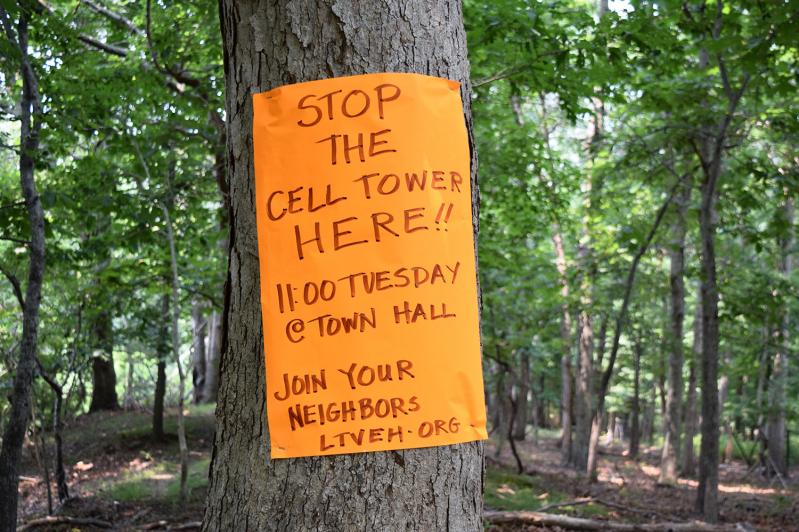 STOP
THE
CELL TOWER
HERE!!
11:00 TUESDAY
@ TOWN HALL
JOIN YOUR
NEIGHBORS
LTVEH.ORG